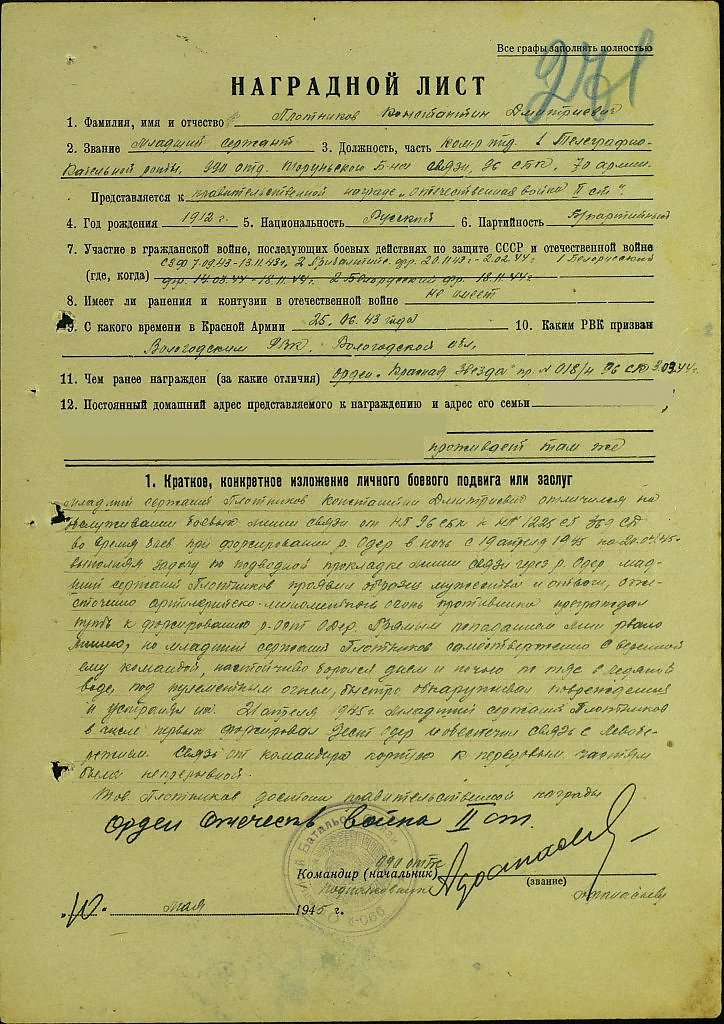 Все графы заполнять полностью
271
НАГРАДНОЙ ЛИСТ
1. Фамилия, имя и отчество Плотников Константин Дмитриевич
2. Звание Младший сержант 3. Должность, часть ком-р отд. 1 Телеграфно-
Кабельной роты, 990 отд. Торуньского Б-на связи, 96 СТК, 70 армии.
Представляется к правительственной награде „Отечественная война II ст".
4. Год рождения 1912 г. 5. Национальность Русский 6. Партийность Б/партийный
7. Участие в гражданской войне, последующих боевых действиях по защите СССР и отечественной войне
СЗФ 7.09.43-13.11.43г, 2 Прибалтийс. фр. 20.11.43г - 2.02.44г 1 Белорусский
(где, когда) фр. 14.03.44 - 18.11.44г 2 Белорусский фр. 18.11.44г
8. Имеет ли ранения и контузии в отечественной войне не имеет
9. С какого времени в Красной Армии 25.06.43 года 10. Каким РВК призван
Вологодским РВК, Вологодской обл,
11. Чем ранее награжден (за какие отличия) орден „Красная Звезда" пр. N 018/н 96 СК 9.09.44г.
12. Постоянный домашний адрес представляемого к награждению и адрес его семьи
проживает там же
1. Краткое, конкретное изложение личного боевого подвига или заслуг
Младший сержант Плотников Константин Дмитриевич отличился на
обслуживании боевых линий связи от НП 96 СБК к НП 1225 СП 369 СД
во время боев при форсировании р. Одер в ночь с 19 апреля 1945 на 20.04.45.
выполняя задачу по подводной прокладке линии связи через р. Одер млад-
ший сержант Плотников проявил образец мужества и отваги, оже-
сточенно артиллерийско-минометного огонь противника преграждал
путь к форсированию р. Ост Одер. Прямым попаданием мин рвало
линию, но младший сержант Плотников самоотверженно с вверенной
ему командой, настойчиво боролся днем и ночью по в ледяной
воде, под пулеметным огнем, быстро обнаруживал повреждения
и устранял их. 21 апреля 1945г. младший сержант Плотников
в числе первых форсировал Вест Одер и обеспечил связь с левобе-
режием. Связь от командира корпуса к передовым частям
была непрерывной.
Тов. Плотников достоин правительственной награды
орден Отечеств война II ст.
Командир (начальник) 990 отд
Подполковник
(звание)
„10" мая 1945 г.